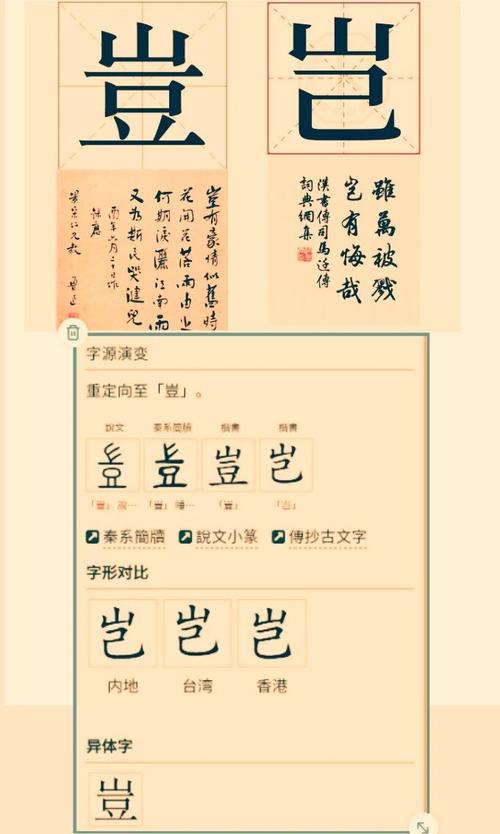 豈
岂
豈有豪情似舊時
花開花落兩由之
何期淚灑江南雨
又為斯民哭健兒
酉年六月二十日作
魯迅
雖萬被戮
豈有悔哉
漢書傳司馬迁傳
詞典網集
字源演变
重定向至「豈」。
說文
秦系簡牘
楷書
楷書
豈
豈
豈
岂
「豈」說…
「豈」睡…
「豈」
「岂」
秦系簡牘
說文小篆
傳抄古文字
字形对比
岂
岂
岂
内地
台湾
香港
异体字
豈